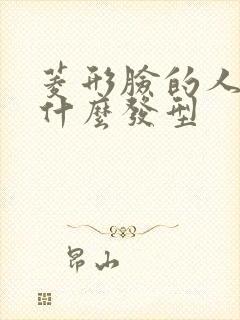 菱形臉的人
什麼發型
昂山